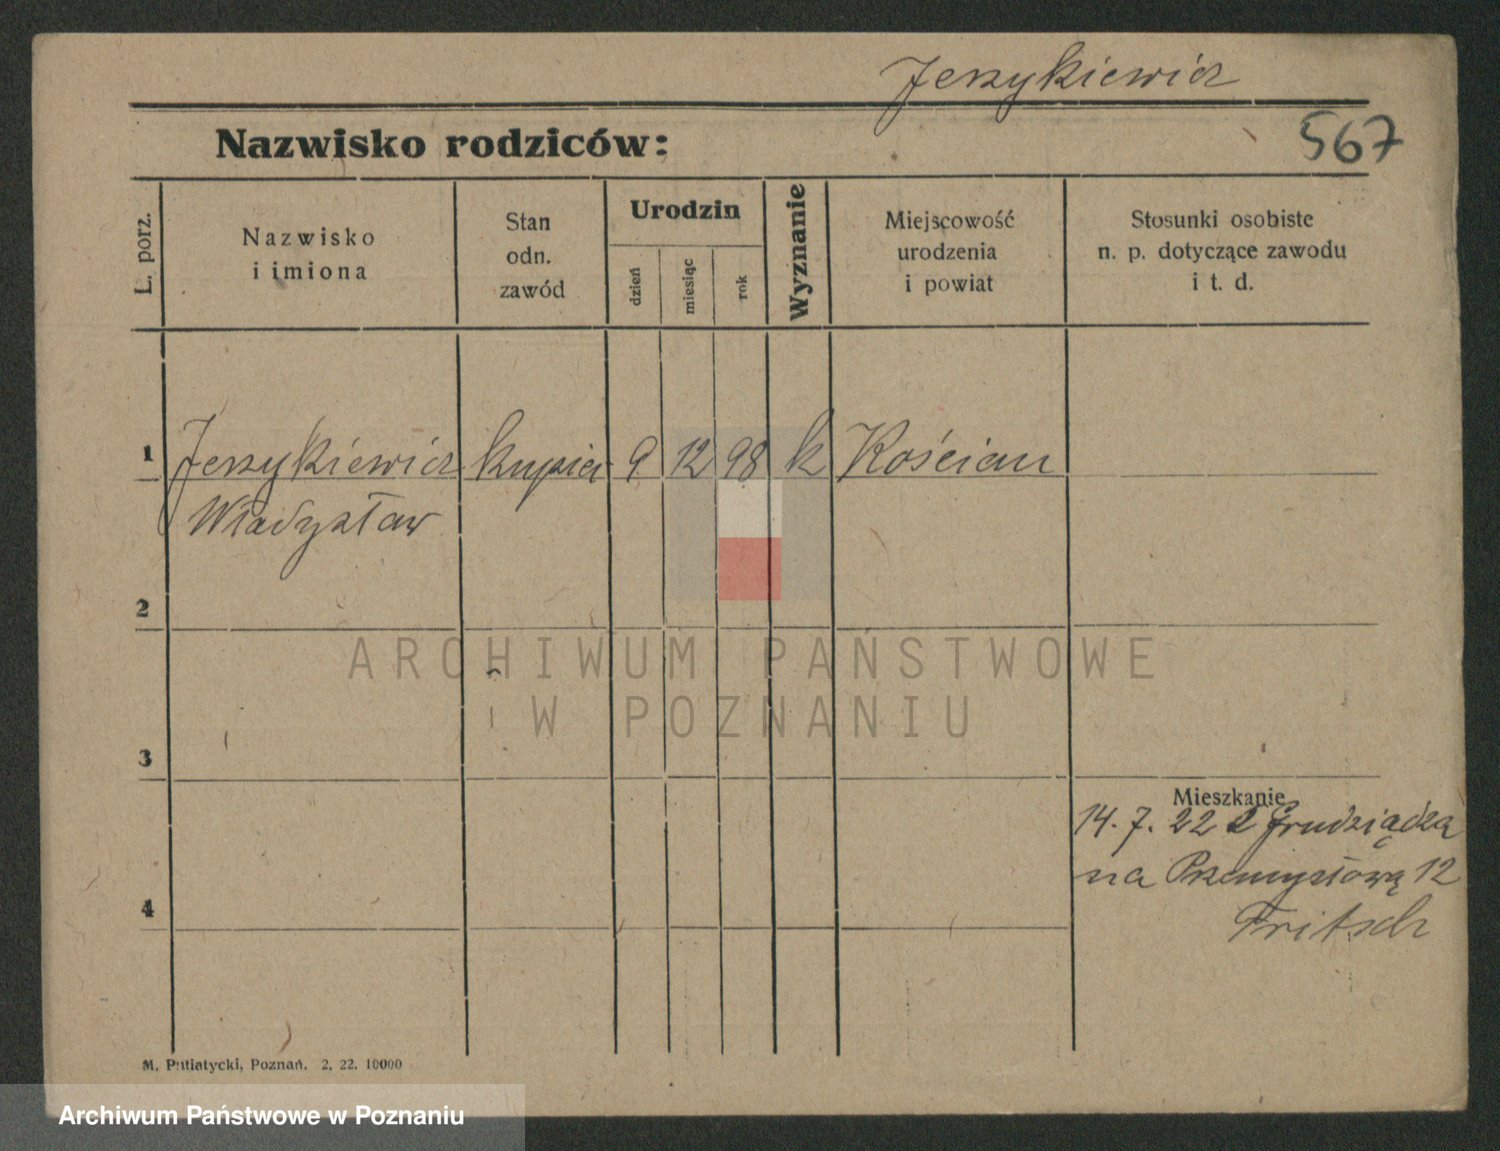 Jerzykiewicz
Nazwisko rodziców:
567
L. porz.
Nazwisko
i imiona
Stan
odn.
zawód
Urodzin
dzień
miesiąc
rok
Wyznanie
Miejscowość
urodzenia
i powiat
Stosunki osobiste
n. p. dotyczące zawodu
i t. d.
1
Jerzykiewicz kupiec 9 12 98 k Kościan
Władysław
2
ARCHIWUM PAŃSTWOWE
W POZNANIU
3
Mieszkanie
14. 7. 22 z Grudziądza
4
na Przemysłową 12
Fritsch
M. Putiatycki, Poznań. 2, 22. 10000
Archiwum Państwowe w Poznaniu